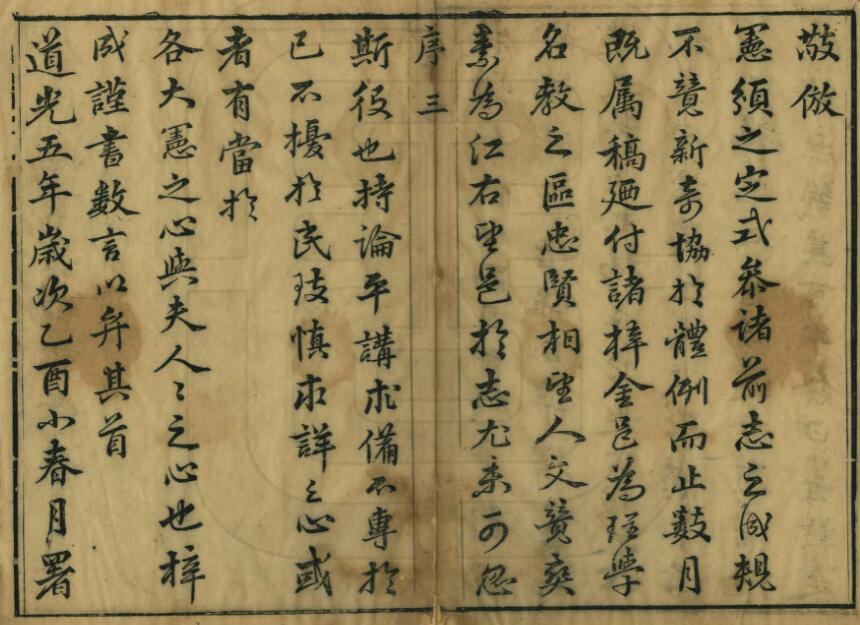 敬倣
憲頒之定式參諸前志之成規
不競新奇協於體例而止數月
既属稿廼付諸梓金邑為理學
名教之區忠賢相望人文競爽
素為江右望邑於志尤素可忽
序 三
斯役也持論平講求備不專於
己不擾於民玆慎求詳之心或
者有當於
各大憲之心與夫人〻之心也梓
成謹書数言以弁其首
道光五年歲次乙酉小春月署